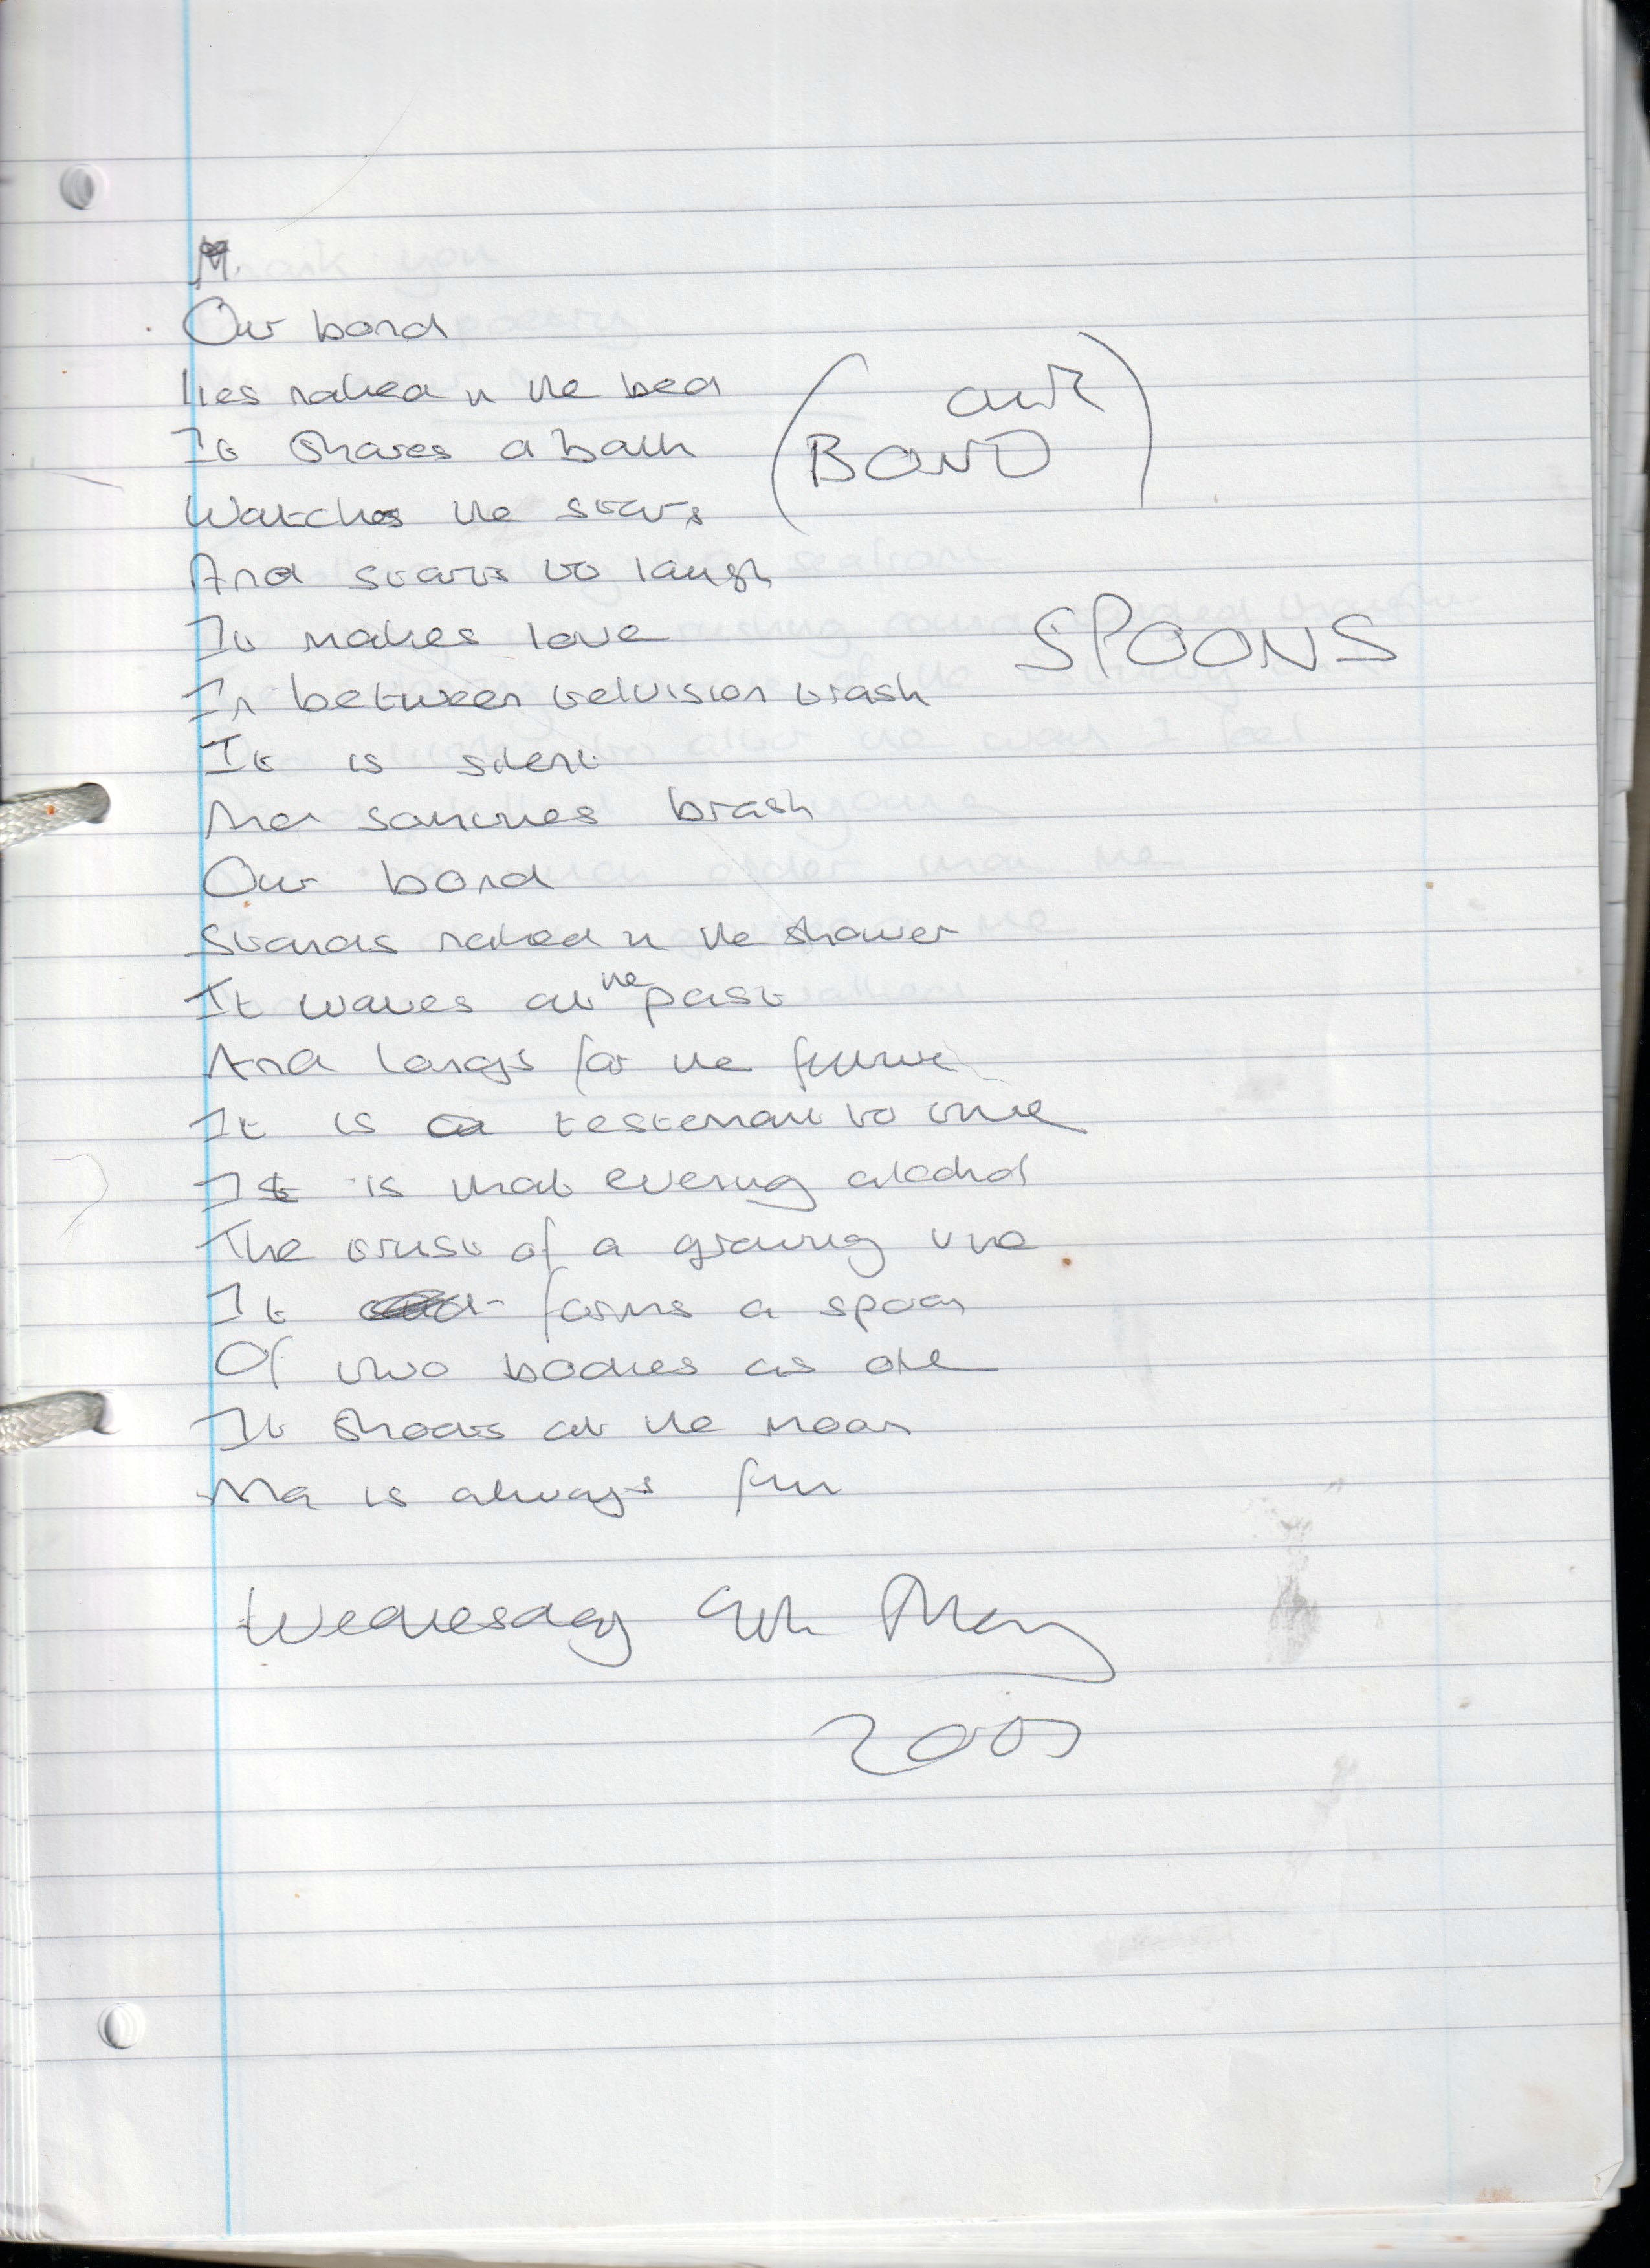 Our bond
lies naked in the bed
It shares a bath
Watches the stars
And starts to laugh
It makes love
In between telvision trash
It is silent
And sometimes brash
Our bond
Stands naked in the shower
It waves at the past
And longs for the future
It is a testemant to time
It is that evening alcohol
The trust of a growing vine
It forms a spoon
Of two bodies as one
It shoots at the moon
And is always fun
(our
BOND)
SPOONS
Wednesday 4th May
2005